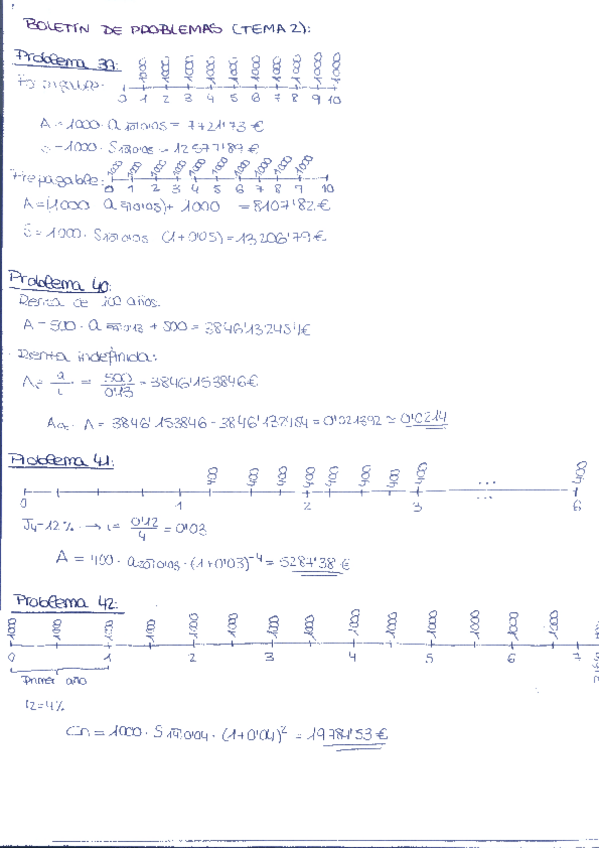 BOLETÍN DE PROBLEMAS (TEMA 2):
Problema 39:
1000 1000 1000 1000 1000 1000 1000 1000 1000 1000
0 1 2 3 4 5 6 7 8 9 10
A = 1000 · a 10 0'05 = 7721'73 €
= 1000 · S 10 0'05 = 12577'89 €
Prepagable:
1000 1000 1000 1000 1000 1000 1000 1000 1000 1000
0 1 2 3 4 5 6 7 8 9 10
A = (1000 · a 9 0'05) + 1000 = 8107'82 €
S̈ = 1000 · S 10 0'05 (1+0'05) = 13206'79 €
Problema 40:
Renta de 100 años:
A = 500 · a 0'13 + 500 =
Renta indefinida:
A = a/i = 500/0'13 = 3846'153846 €
A∞ - A = 3846'153846 - = 0'021392 ≃ 0'0214
Problema 41:
400 400 400 400 400 400 400 400 400 ... 400
0 1 2 3 ... 6
J4 = 12% → i = 0'12/4 = 0'03
A = 400 · a 20 0'03 · (1+0'03)⁻⁴ = 5287'38 €
Problema 42:
1000 1000 1000 1000 1000 1000 1000 1000 1000 1000 1000 1000 1000 1000
0 1 2 3 4 5 6 7
Primer año
i2 = 4%
Cn = 1000 · S 14 0'04 · (1+0'04)² = 19784'53 €